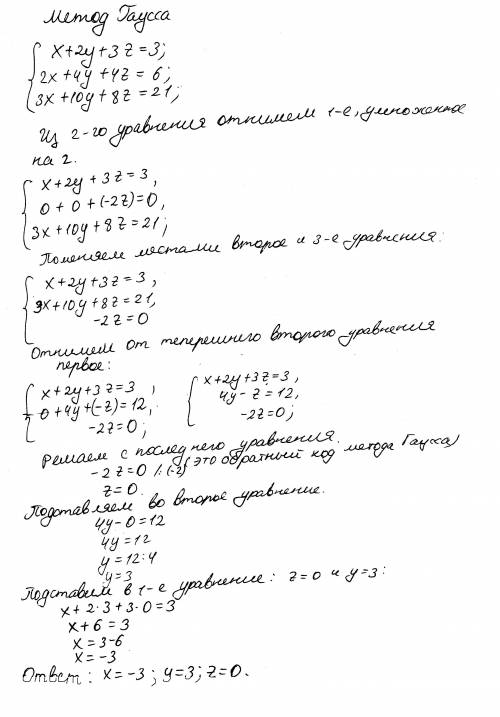 Метод Гаусса
x+2y+3z=3;
2x+4y+4z=6;
3x+10y+8z=21;
Из 2-го уравнения отнимем 1-е, умноженное
на 2.
x+2y+3z=3,
0+0+(-2z)=0,
3x+10y+8z=21;
Поменяем местами второе и 3-е уравнения:
x+2y+3z=3,
3x+10y+8z=21,
-2z=0
Отнимем от теперешнего второго уравнения
первое:
x+2y+3z=3,
0+4y+(-z)=12,
-2z=0;
x+2y+3z=3,
4y-z=12,
-2z=0;
Решаем с последнего уравнения.
(это обратный ход метода Гаусса)
-2z=0 /:(-2)
z=0.
Подставляем во второе уравнение.
4y-0=12
4y=12
y=12:4
y=3
Подставим в 1-е уравнение: z=0 и y=3:
x+2·3+3·0=3
x+6=3
x=3-6
x=-3
Ответ: x=-3; y=3; z=0.